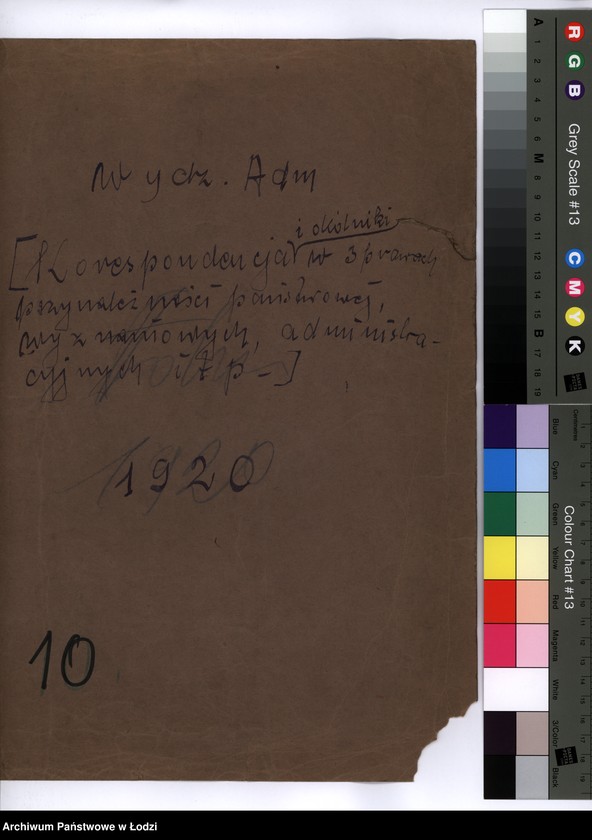 Wydz. Adm
i okólniki
[Korespondencja w sprawach
przynależności państwowej,
wyznaniowych, administra-
cyjnych itp -]
1920
10
R G B
Grey Scale #13
C M Y K
A 1 2 3 4 5 6 M 8 9 10 11 12 13 14 15 B 17 18 19
Colour Chart #13
Blue
Cyan
Green
Yellow
Red
Magenta
White
3/Color
Black
Centimetres
Archiwum Państwowe w Łodzi